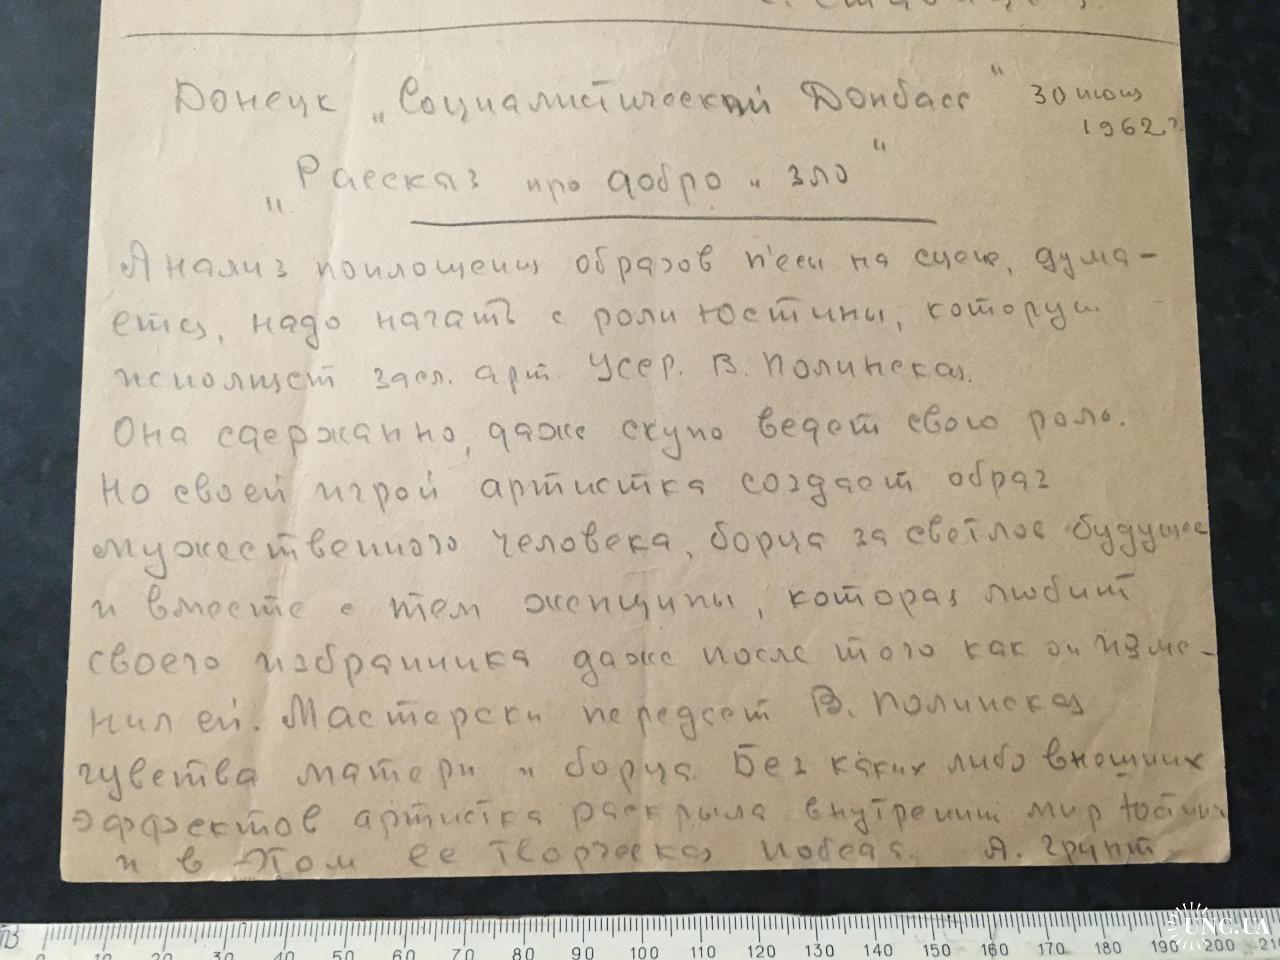 Донецк „Социалистический Донбасс" 30 июня
1962 г.
„Рассказ про добро и зло"
Анализ воплощения образов пьесы на сцене, дума-
ется, надо начать с роли Юстины, которую
исполняет засл. арт. УССР. В. Полинская.
Она сдержанно, даже скупо ведет свою роль.
Но своей игрой артистка создает образ
мужественного человека, борца за светлое будущее
и вместе с тем женщины, которая любит
своего избранника даже после того как он изме-
нил ей. Мастерски передает В. Полинская
чувства матери и борца. Без каких либо внешних
эффектов артистка раскрыла внутренний мир Юстины
и в этом ее творческая победа. А. Грипт
0 10 20 30 40 50 60 70 80 90 100 110 120 130 140 150 160 170 180 190 200 210
UNC.UA